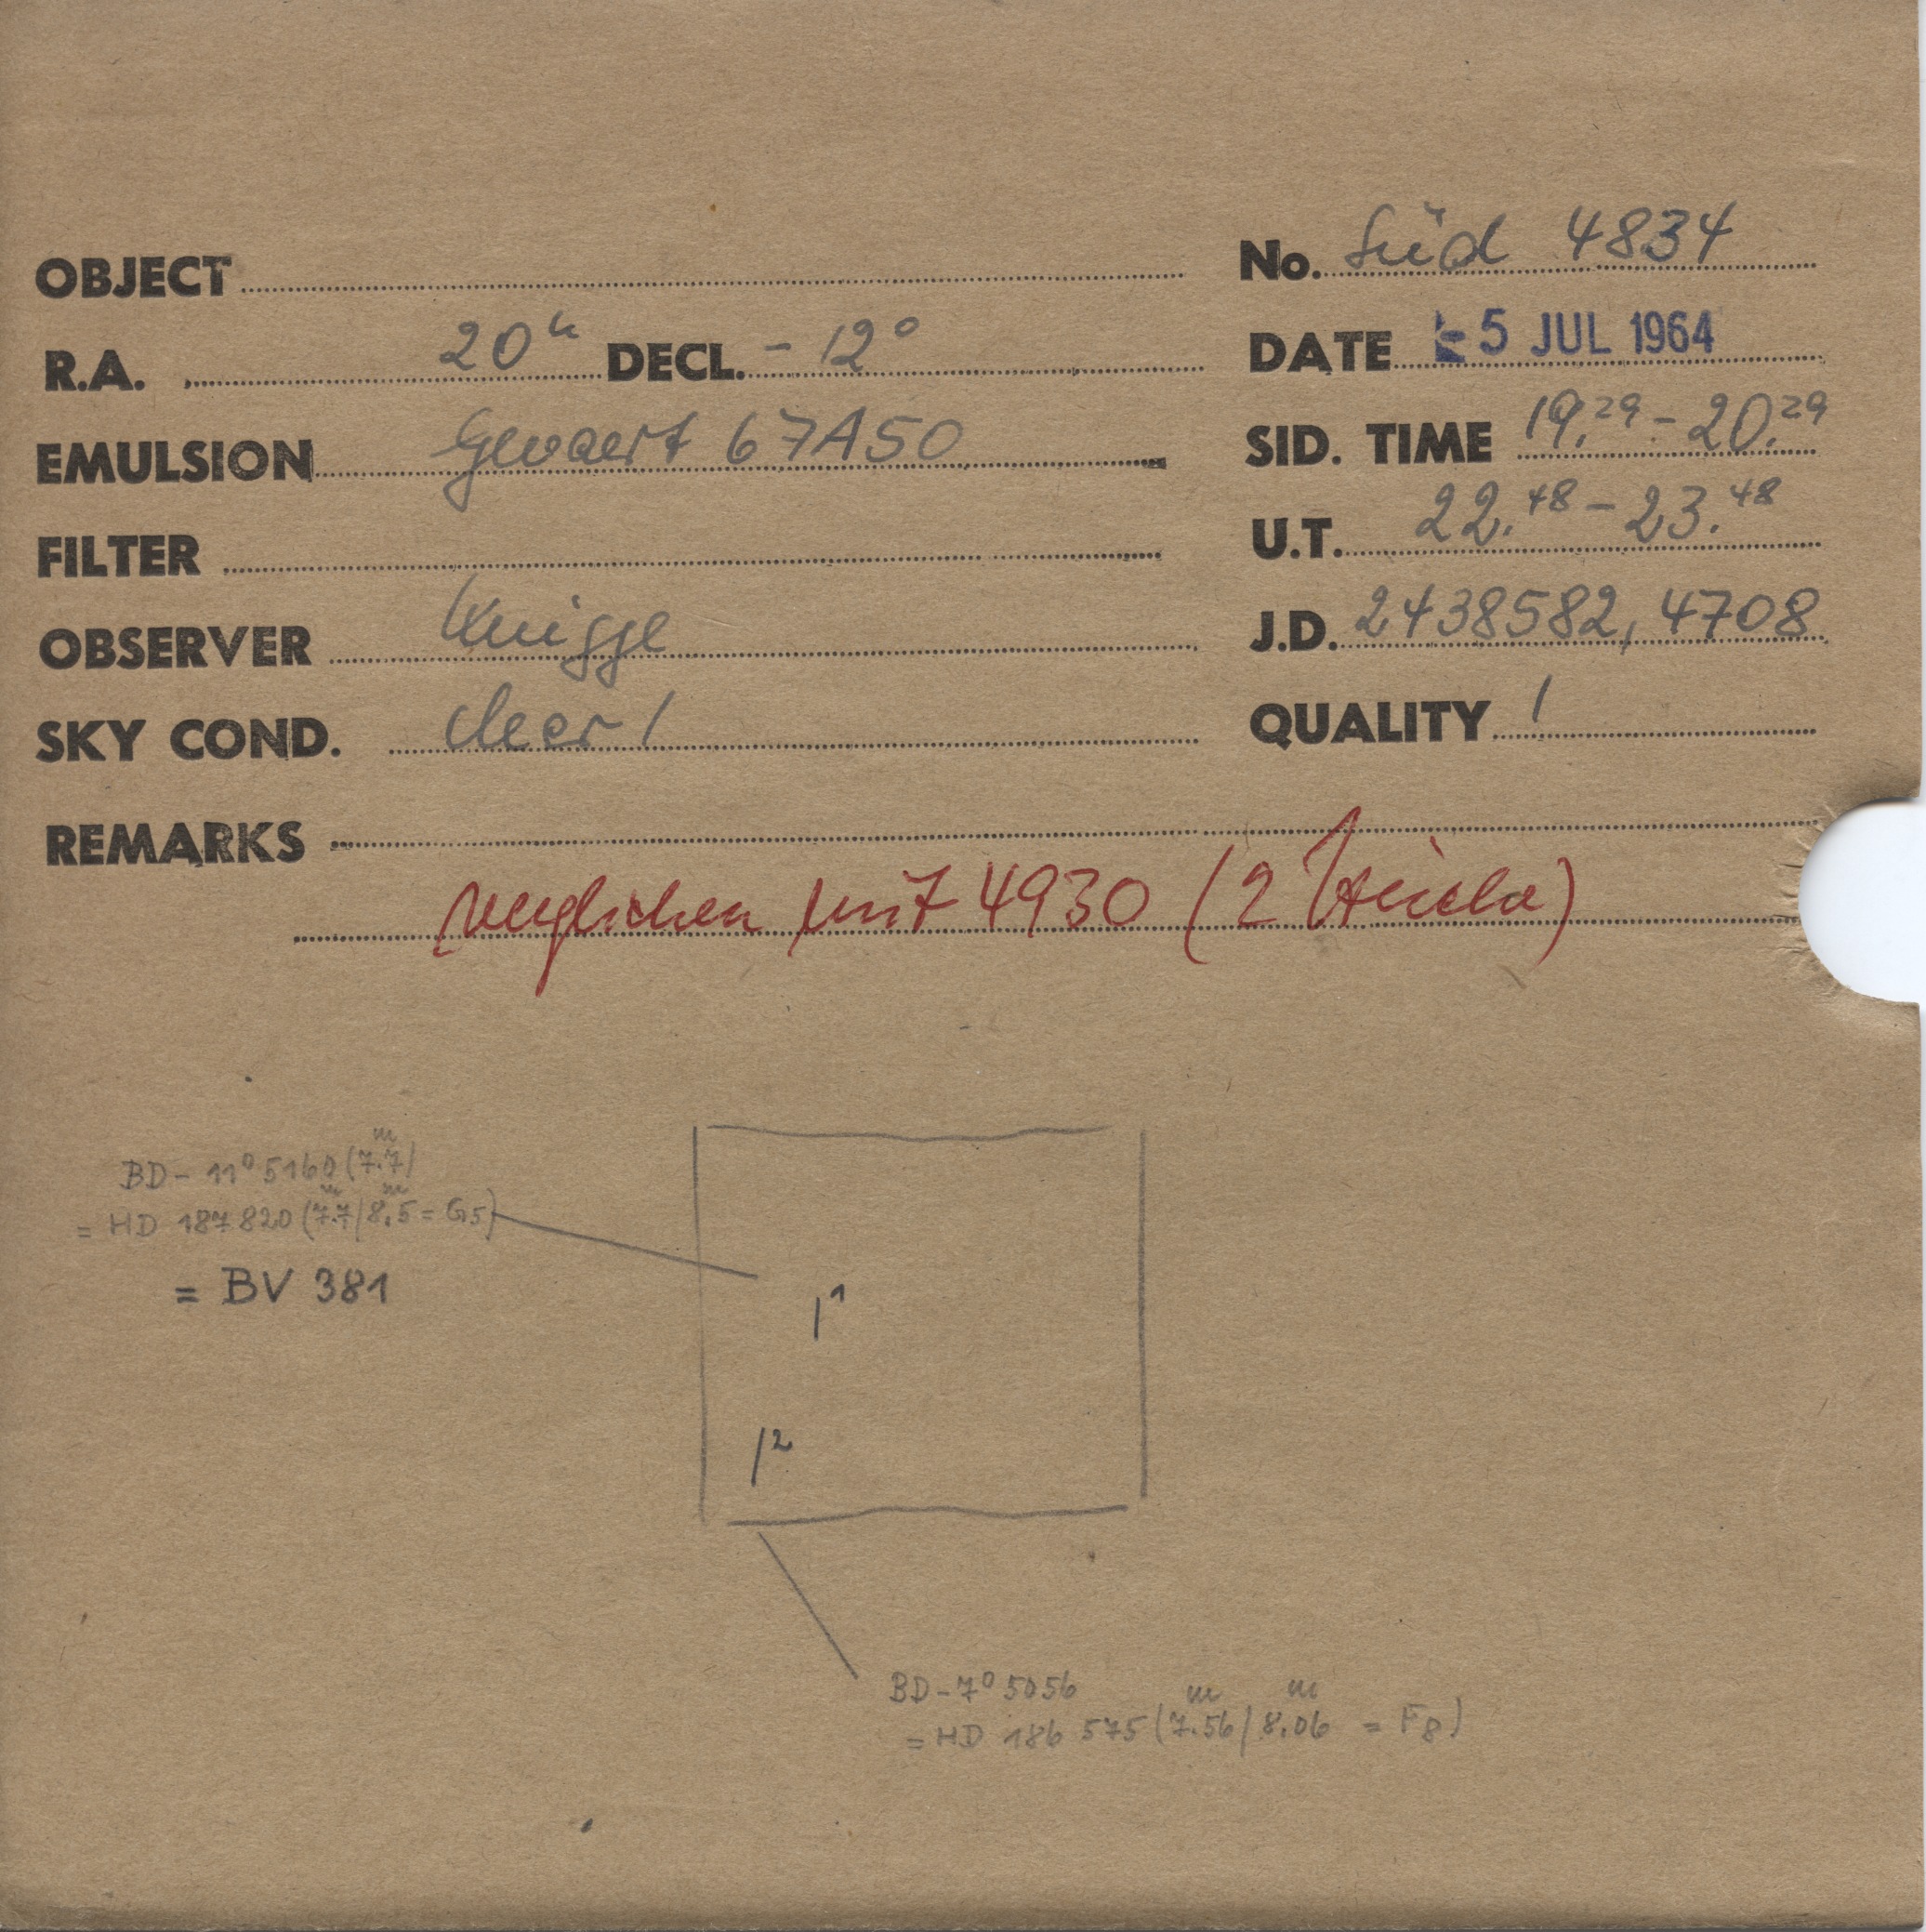 OBJECT
No. Süd 4834
R.A. 20h DECL. - 12°
DATE - 5 JUL 1964
EMULSION Gevaert 67A50
SID. TIME 19.29 - 20.29
FILTER
U.T. 22.48 - 23.48
OBSERVER Knigge
J.D. 2438582,4708
SKY COND. clear 1
QUALITY 1
REMARKS
verglichen mit 4930 (2 )
BD - 11° 5160 (7.7m)
= HD 187820 (7.7m/8.5m = G5)
= BV 381
1
2
BD - 7° 5056
= HD 186575 (7.56m/8.06m = F8)